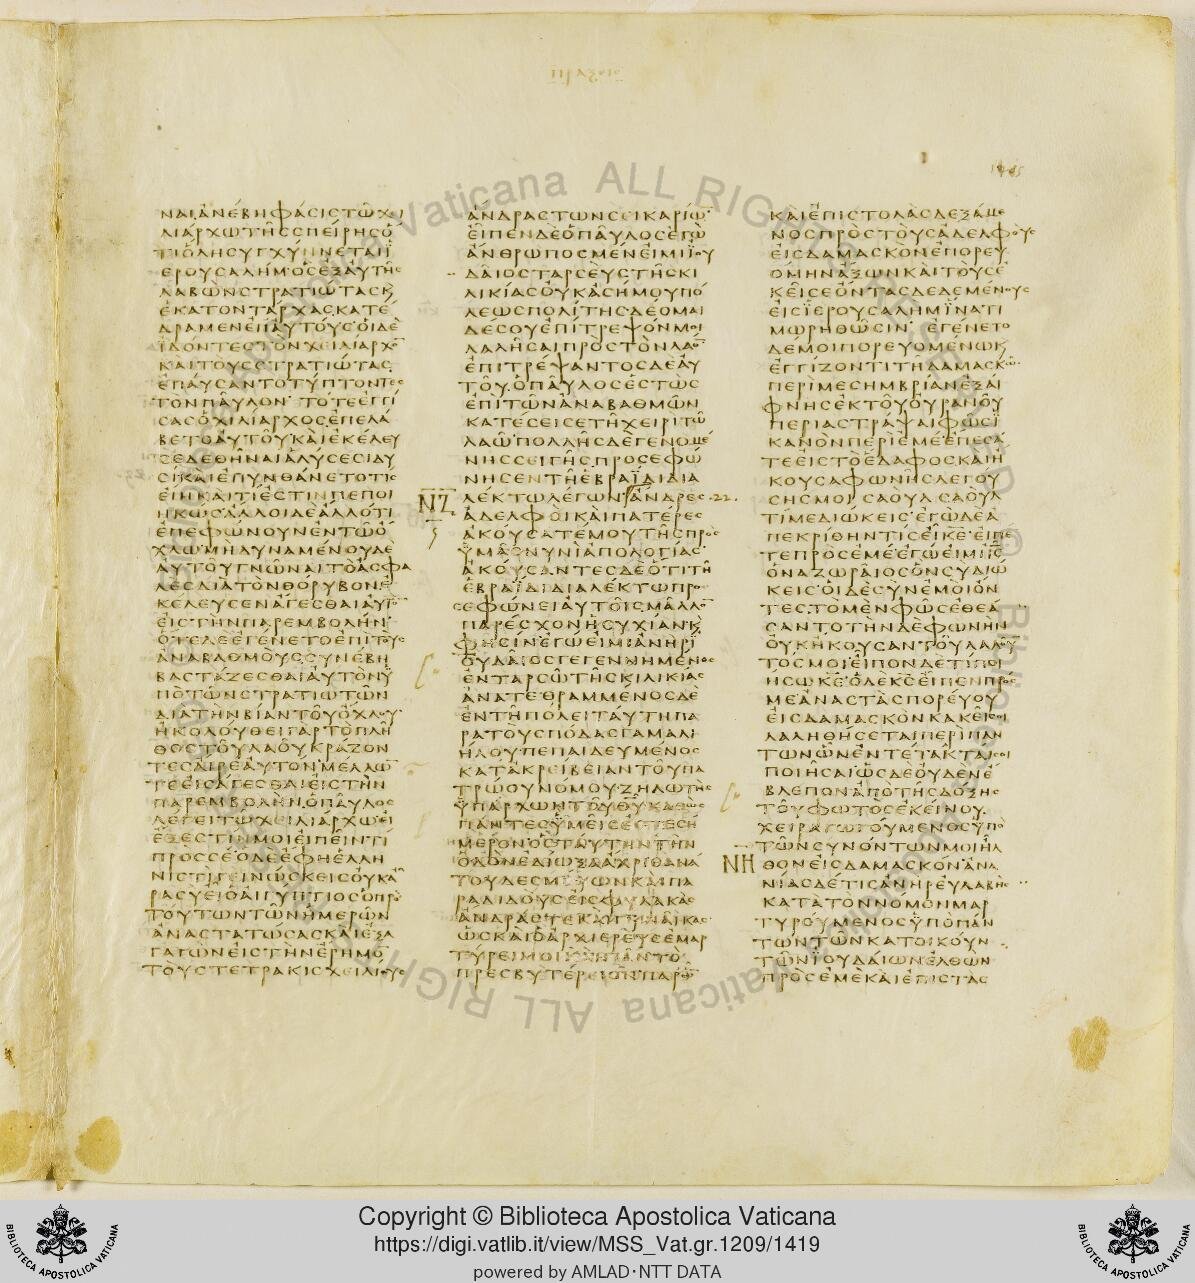 ΝΑΙ ΑΝΕΒΗ ΦΑΣΙΣ ΤΩ ΧΕΙ
ΛΙΑΡΧΩ ΤΗΣ ΣΠΕΙΡΗΣ Ο
ΤΙ ΟΛΗ ΣΥΓΧΥΝΝΕΤΑΙ Ϊ
ΕΡΟΥΣΑΛΗΜ ΟΣ ΕΞΑΥΤΗΣ
ΛΑΒΩΝ ΣΤΡΑΤΙΩΤΑΣ Κ
ΕΚΑΤΟΝΤΑΡΧΑΣ ΚΑΤΕ
ΔΡΑΜΕΝ ΕΠ ΑΥΤΟΥΣ ΟΙ ΔΕ
ΪΔΟΝΤΕΣ ΤΟΝ ΧΕΙΛΙΑΡΧΟ
ΚΑΙ ΤΟΥΣ ΣΤΡΑΤΙΩΤΑΣ
ΕΠΑΥΣΑΝΤΟ ΤΥΠΤΟΝΤΕΣ
ΤΟΝ ΠΑΥΛΟΝ ΤΟΤΕ ΕΓΓΙ
ΣΑΣ Ο ΧΙΛΙΑΡΧΟΣ ΕΠΕΛΑ
ΒΕΤΟ ΑΥΤΟΥ ΚΑΙ ΕΚΕΛΕΥ
ΣΕ ΔΕΘΗΝΑΙ ΑΛΥΣΕΣΙ ΔΥ
ΣΙ ΚΑΙ ΕΠΥΝΘΑΝΕΤΟ ΤΙΣ
ΕΙΗ ΚΑΙ ΤΙ ΕΣΤΙΝ ΠΕΠΟΙ
ΗΚΩΣ ΑΛΛΟΙ ΔΕ ΑΛΛΟ ΤΙ
ΕΠΕΦΩΝΟΥΝ ΕΝ ΤΩ Ο
ΧΛΩ ΜΗ ΔΥΝΑΜΕΝΟΥ ΔΕ
ΑΥΤΟΥ ΓΝΩΝΑΙ ΤΟ ΑΣΦΑ
ΛΕΣ ΔΙΑ ΤΟΝ ΘΟΡΥΒΟΝ Ε
ΚΕΛΕΥΣΕΝ ΑΓΕΣΘΑΙ ΑΥΤΟ
ΕΙΣ ΤΗΝ ΠΑΡΕΜΒΟΛΗΝ
ΟΤΕ ΔΕ ΕΓΕΝΕΤΟ ΕΠΙ ΤΟΥΣ
ΑΝΑΒΑΘΜΟΥΣ ΣΥΝΕΒΗ
ΒΑΣΤΑΖΕΣΘΑΙ ΑΥΤΟΝ Υ
ΠΟ ΤΩΝ ΣΤΡΑΤΙΩΤΩΝ
ΔΙΑ ΤΗΝ ΒΙΑΝ ΤΟΥ ΟΧΛΟΥ
ΗΚΟΛΟΥΘΕΙ ΓΑΡ ΤΟ ΠΛΗ
ΘΟΣ ΤΟΥ ΛΑΟΥ ΚΡΑΖΟΝ
ΤΕΣ ΑΙΡΕ ΑΥΤΟΝ ΜΕΛΛΩ
ΤΕ ΕΙΣΑΓΕΣΘΑΙ ΕΙΣ ΤΗΝ
ΠΑΡΕΜΒΟΛΗΝ Ο ΠΑΥΛΟΣ
ΛΕΓΕΙ ΤΩ ΧΕΙΛΙΑΡΧΩ ΕΙ
ΕΞΕΣΤΙΝ ΜΟΙ ΕΙΠΕΙΝ ΤΙ
ΠΡΟΣ ΣΕ Ο ΔΕ ΕΦΗ ΕΛΛΗ
ΝΙΣΤΙ ΓΕΙΝΩΣΚΕΙΣ ΟΥΚ Α
ΡΑ ΣΥ ΕΙ Ο ΑΙΓΥΠΤΙΟΣ Ο ΠΡΟ
ΤΟΥΤΩΝ ΤΩΝ ΗΜΕΡΩΝ
ΑΝΑΣΤΑΤΩΣΑΣ ΚΑΙ ΕΞΑ
ΓΑΓΩΝ ΕΙΣ ΤΗΝ ΕΡΗΜΟ
ΤΟΥΣ ΤΕΤΡΑΚΙΣΧΕΙΛΙΟΥΣ
ΑΝΔΡΑΣ ΤΩΝ ΣΙΚΑΡΙΩ
ΕΙΠΕΝ ΔΕ Ο ΠΑΥΛΟΣ ΕΓΩ
ΑΝΘΡΩΠΟΣ ΜΕΝ ΕΙΜΙ ΪΟΥ
ΔΑΙΟΣ ΤΑΡΣΕΥΣ ΤΗΣ ΚΙ
ΛΙΚΙΑΣ ΟΥΚ ΑΣΗΜΟΥ ΠΟ
ΛΕΩΣ ΠΟΛΙΤΗΣ ΔΕΟΜΑΙ
ΔΕ ΣΟΥ ΕΠΙΤΡΕΨΟΝ ΜΟΙ
ΛΑΛΗΣΑΙ ΠΡΟΣ ΤΟΝ ΛΑΟ
ΕΠΙΤΡΕΨΑΝΤΟΣ ΔΕ ΑΥ
ΤΟΥ Ο ΠΑΥΛΟΣ ΕΣΤΩΣ
ΕΠΙ ΤΩΝ ΑΝΑΒΑΘΜΩΝ
ΚΑΤΕΣΕΙΣΕ ΤΗ ΧΕΙΡΙ ΤΩ
ΛΑΩ ΠΟΛΛΗΣ ΔΕ ΓΕΝΟΜΕ
ΝΗΣ ΣΕΙΓΗΣ ΠΡΟΣΕΦΩ
ΝΗΣΕΝ ΤΗ ΕΒΡΑΪΔΙ ΔΙΑ
ΝΖ
ΛΕΚΤΩ ΛΕΓΩΝ ΑΝΔΡΕΣ 22.
ΑΔΕΛΦΟΙ ΚΑΙ ΠΑΤΕΡΕΣ
ΑΚΟΥΣΑΤΕ ΜΟΥ ΤΗΣ ΠΡΟΣ
ΫΜΑΣ ΝΥΝΙ ΑΠΟΛΟΓΙΑΣ
ΑΚΟΥΣΑΝΤΕΣ ΔΕ ΟΤΙ ΤΗ
ΕΒΡΑΪΔΙ ΔΙΑΛΕΚΤΩ ΠΡΟ
ΣΕΦΩΝΕΙ ΑΥΤΟΙΣ ΜΑΛΛΟ
ΠΑΡΕΣΧΟΝ ΗΣΥΧΙΑΝ Κ
ΦΗΣΙΝ ΕΓΩ ΕΙΜΙ ΑΝΗΡ Ϊ
ΟΥΔΑΙΟΣ ΓΕΓΕΝΝΗΜΕΝΟΣ
ΕΝ ΤΑΡΣΩ ΤΗΣ ΚΙΛΙΚΙΑΣ
ΑΝΑΤΕΘΡΑΜΜΕΝΟΣ ΔΕ
ΕΝ ΤΗ ΠΟΛΕΙ ΤΑΥΤΗ ΠΑ
ΡΑ ΤΟΥΣ ΠΟΔΑΣ ΓΑΜΑΛΙ
ΗΛΟΥ ΠΕΠΑΙΔΕΥΜΕΝΟΣ
ΚΑΤΑ ΑΚΡΕΙΒΕΙΑΝ ΤΟΥ ΠΑ
ΤΡΩΟΥ ΝΟΜΟΥ ΖΗΛΩΤΗΣ
ΫΠΑΡΧΩΝ ΤΟΥ ΘΥ ΚΑΘΩΣ
ΠΑΝΤΕΣ ΫΜΕΙΣ ΕΣΤΕ ΣΗ
ΜΕΡΟΝ ΟΣ ΤΑΥΤΗΝ ΤΗΝ
ΟΔΟΝ ΕΔΙΩΞΑ ΑΧΡΙ ΘΑΝΑ
ΤΟΥ ΔΕΣΜΕΥΩΝ ΚΑΙ ΠΑ
ΡΑΔΙΔΟΥΣ ΕΙΣ ΦΥΛΑΚΑΣ
ΑΝΔΡΑΣ ΤΕ ΚΑΙ ΓΥΝΑΙΚΑΣ
ΩΣ ΚΑΙ Ο ΑΡΧΙΕΡΕΥΣ ΕΜΑΡ
ΤΥΡΕΙ ΜΟΙ ΚΑΙ ΠΑΝ ΤΟ
ΠΡΕΣΒΥΤΕΡΕΙΟΝ ΠΑΡ Ω
ΚΑΙ ΕΠΙΣΤΟΛΑΣ ΔΕΞΑΜΕ
ΝΟΣ ΠΡΟΣ ΤΟΥΣ ΑΔΕΛΦΟΥΣ
ΕΙΣ ΔΑΜΑΣΚΟΝ ΕΠΟΡΕΥ
ΟΜΗΝ ΑΞΩΝ ΚΑΙ ΤΟΥΣ Ε
ΚΕΙΣΕ ΟΝΤΑΣ ΔΕΔΕΜΕΝΟΥΣ
ΕΙΣ ΪΕΡΟΥΣΑΛΗΜ ΪΝΑ ΤΙ
ΜΩΡΗΘΩΣΙΝ ΕΓΕΝΕΤΟ
ΔΕ ΜΟΙ ΠΟΡΕΥΟΜΕΝΩ Κ
ΕΓΓΙΖΟΝΤΙ ΤΗ ΔΑΜΑΣΚΩ
ΠΕΡΙ ΜΕΣΗΜΒΡΙΑΝ ΕΞΑΙ
ΦΝΗΣ ΕΚ ΤΟΥ ΟΥΡΑΝΟΥ
ΠΕΡΙΑΣΤΡΑΨΑΙ ΦΩΣ Ϊ
ΚΑΝΟΝ ΠΕΡΙ ΕΜΕ ΕΠΕΣΑ
ΤΕ ΕΙΣ ΤΟ ΕΔΑΦΟΣ ΚΑΙ Η
ΚΟΥΣΑ ΦΩΝΗΣ ΛΕΓΟΥ
ΣΗΣ ΜΟΙ ΣΑΟΥΛ ΣΑΟΥΛ
ΤΙ ΜΕ ΔΙΩΚΕΙΣ ΕΓΩ ΔΕ Α
ΠΕΚΡΙΘΗΝ ΤΙΣ ΕΙ ΚΕ ΕΙΠΕ
ΤΕ ΠΡΟΣ ΕΜΕ ΕΓΩ ΕΙΜΙ ΙΣ
Ο ΝΑΖΩΡΑΙΟΣ ΟΝ ΣΥ ΔΙΩ
ΚΕΙΣ ΟΙ ΔΕ ΣΥΝ ΕΜΟΙ ΟΝ
ΤΕΣ ΤΟ ΜΕΝ ΦΩΣ ΕΘΕΑ
ΣΑΝΤΟ ΤΗΝ ΔΕ ΦΩΝΗΝ
ΟΥΚ ΗΚΟΥΣΑΝ ΤΟΥ ΛΑΛΟΥ
ΤΟΣ ΜΟΙ ΕΙΠΟΝ ΔΕ ΤΙ ΠΟΙ
ΗΣΩ ΚΕ Ο ΔΕ ΚΣ ΕΙΠΕΝ ΠΡΟΣ
ΜΕ ΑΝΑΣΤΑΣ ΠΟΡΕΥΟΥ
ΕΙΣ ΔΑΜΑΣΚΟΝ ΚΑΚΕΙ ΣΟΙ
ΛΑΛΗΘΗΣΕΤΑΙ ΠΕΡΙ ΠΑΝ
ΤΩΝ ΩΝ ΕΝΤΕΤΑΚΤΑΙ ΣΟΙ
ΠΟΙΗΣΑΙ ΩΣ ΔΕ ΟΥΔΕΝ Ε
ΒΛΕΠΟΝ ΑΠΟ ΤΗΣ ΔΟΞΗΣ
ΤΟΥ ΦΩΤΟΣ ΕΚΕΙΝΟΥ
ΧΕΙΡΑΓΩΓΟΥΜΕΝΟΣ ΫΠΟ
ΤΩΝ ΣΥΝΟΝΤΩΝ ΜΟΙ ΗΛ
ΝΗ
ΘΟΝ ΕΙΣ ΔΑΜΑΣΚΟΝ ΑΝΑ
ΝΙΑΣ ΔΕ ΤΙΣ ΑΝΗΡ ΕΥΛΑΒΗΣ
ΚΑΤΑ ΤΟΝ ΝΟΜΟΝ ΜΑΡ
ΤΥΡΟΥΜΕΝΟΣ ΫΠΟ ΠΑΝ
ΤΩΝ ΤΩΝ ΚΑΤΟΙΚΟΥΝ
ΤΩΝ ΙΟΥΔΑΙΩΝ ΕΛΘΩΝ
ΠΡΟΣ ΕΜΕ ΚΑΙ ΕΠΙΣΤΑΣ
Copyright © Biblioteca Apostolica Vaticana
https://digi.vatlib.it/view/MSS_Vat.gr.1209/1419
powered by AMLAD·NTT DATA